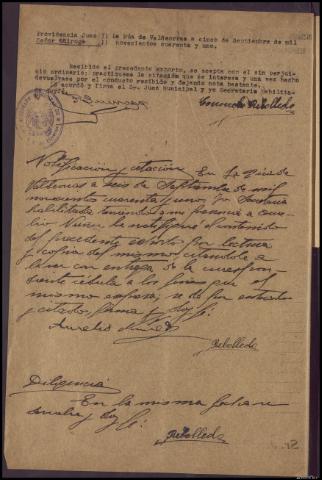 Providencia Juez) La Rúa de Valdeorras a cinco de Septiembre de mil
Señor Quiroga)) novecientos cuarenta y uno.
Recibido el precedente exhorto, se acepta con el sin perjui-
cio ordinario; practiquese la citación que se interesa y una vez hecho
devuelvase por el conducto recibido y dejando nota bastante.
Lo acordó y firma el Sr. Juez Municipal y yo Secretaria Habilita-
Quiroga
Consuelo Rebolledo
Notificación y citación. En La Rúa de
Valdeorras a seis de Septiembre de mil
novecientos cuarenta y uno, yo Secretaria
habilitada teniendo a mi presencia a Aure-
lio Núñez le notifiqué el contenido
del precedente exhorto por lectura
y copia del mismo citándole a
con entrega de la
cédula a los fines que el
mismo expresa; se da por enterado
y citado, firma y doy fé.
Aurelio Núñez
Rebolledo
Diligencia
En la misma fecha se
y doy fé.
Rebolledo